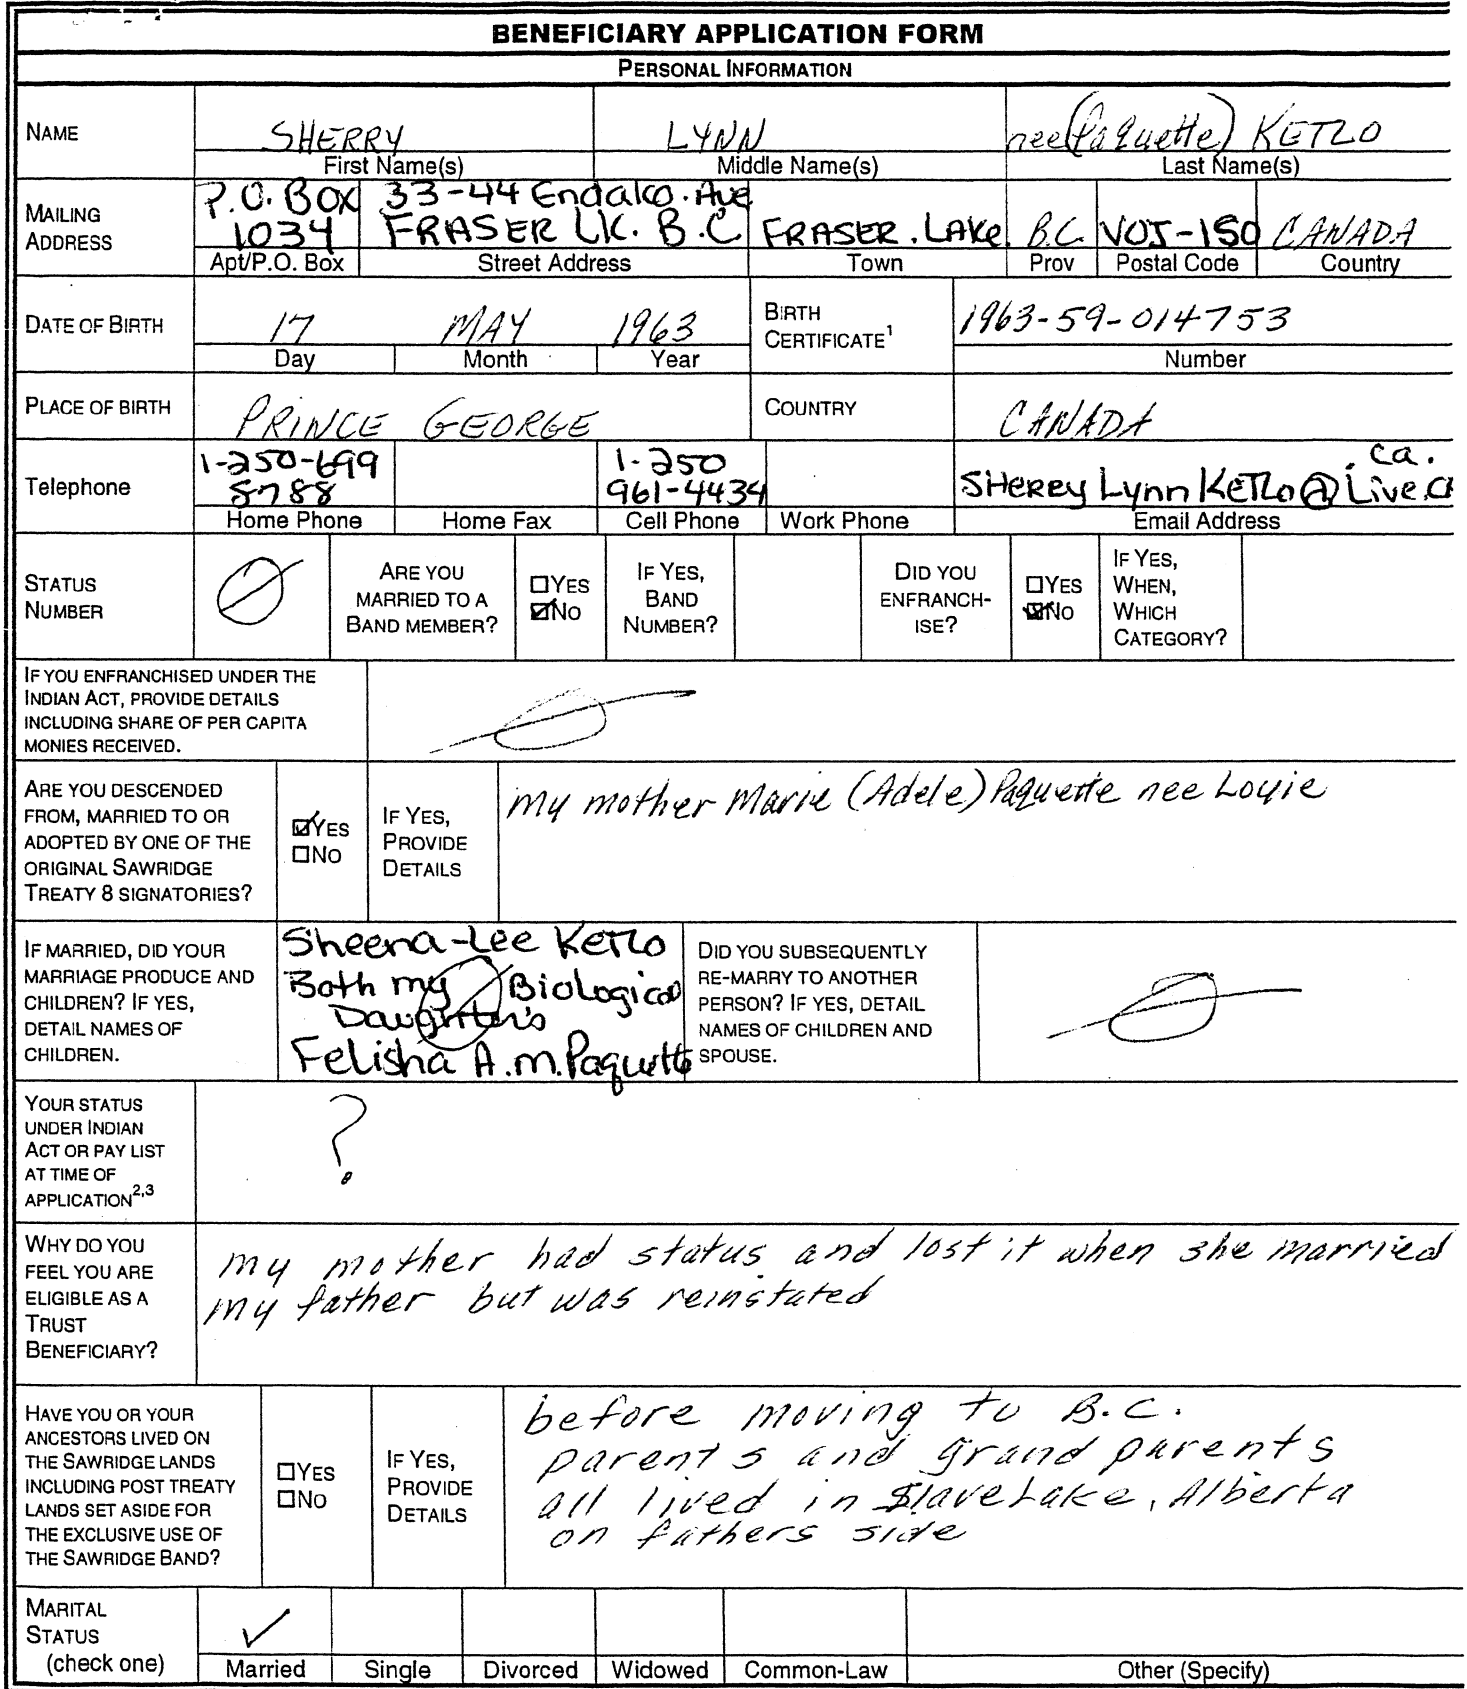 BENEFICIARY APPLICATION FORM
PERSONAL INFORMATION
NAME
SHERRY
LYNN
nee (Paquette) KETLO
First Name(s)
Middle Name(s)
Last Name(s)
MAILING
ADDRESS
P.O. Box
1034
33-44 Endako. Ave
FRASER LK. B.C
FRASER. LAKE
B.C.
VOJ-1S0
CANADA
Apt/P.O. Box
Street Address
Town
Prov
Postal Code
Country
DATE OF BIRTH
17
MAY
1963
Day
Month
Year
BIRTH
CERTIFICATE1
1963-59-014753
Number
PLACE OF BIRTH
PRINCE GEORGE
COUNTRY
CANADA
Telephone
1-250-699
8788
1-250
961-4434
.ca.
SHERRY Lynn KETLO@Live.
Home Phone
Home Fax
Cell Phone
Work Phone
Email Address
STATUS
NUMBER
ARE YOU
MARRIED TO A
BAND MEMBER?
YES
NO
IF YES,
BAND
NUMBER?
DID YOU
ENFRANCH-
ISE?
YES
NO
IF YES,
WHEN,
WHICH
CATEGORY?
IF YOU ENFRANCHISED UNDER THE
INDIAN ACT, PROVIDE DETAILS
INCLUDING SHARE OF PER CAPITA
MONIES RECEIVED.
ARE YOU DESCENDED
FROM, MARRIED TO OR
ADOPTED BY ONE OF THE
ORIGINAL SAWRIDGE
TREATY 8 SIGNATORIES?
YES
NO
IF YES,
PROVIDE
DETAILS
my mother Marie (Adele) Paquette nee Louie
IF MARRIED, DID YOUR
MARRIAGE PRODUCE AND
CHILDREN? IF YES,
DETAIL NAMES OF
CHILDREN.
Sheena-Lee Ketlo
Both my Biological
Daughter's
Felisha A.M. Paquette
DID YOU SUBSEQUENTLY
RE-MARRY TO ANOTHER
PERSON? IF YES, DETAIL
NAMES OF CHILDREN AND
SPOUSE.
YOUR STATUS
UNDER INDIAN
ACT OR PAY LIST
AT TIME OF
APPLICATION2,3
?
WHY DO YOU
FEEL YOU ARE
ELIGIBLE AS A
TRUST
BENEFICIARY?
my mother had status and lost it when she married
my father but was reinstated
HAVE YOU OR YOUR
ANCESTORS LIVED ON
THE SAWRIDGE LANDS
INCLUDING POST TREATY
LANDS SET ASIDE FOR
THE EXCLUSIVE USE OF
THE SAWRIDGE BAND?
YES
NO
IF YES,
PROVIDE
DETAILS
before moving to B.C.
parents and grand parents
all lived in Slave Lake, Alberta
on fathers side
MARITAL
STATUS
(check one)
Married
Single
Divorced
Widowed
Common-Law
Other (Specify)